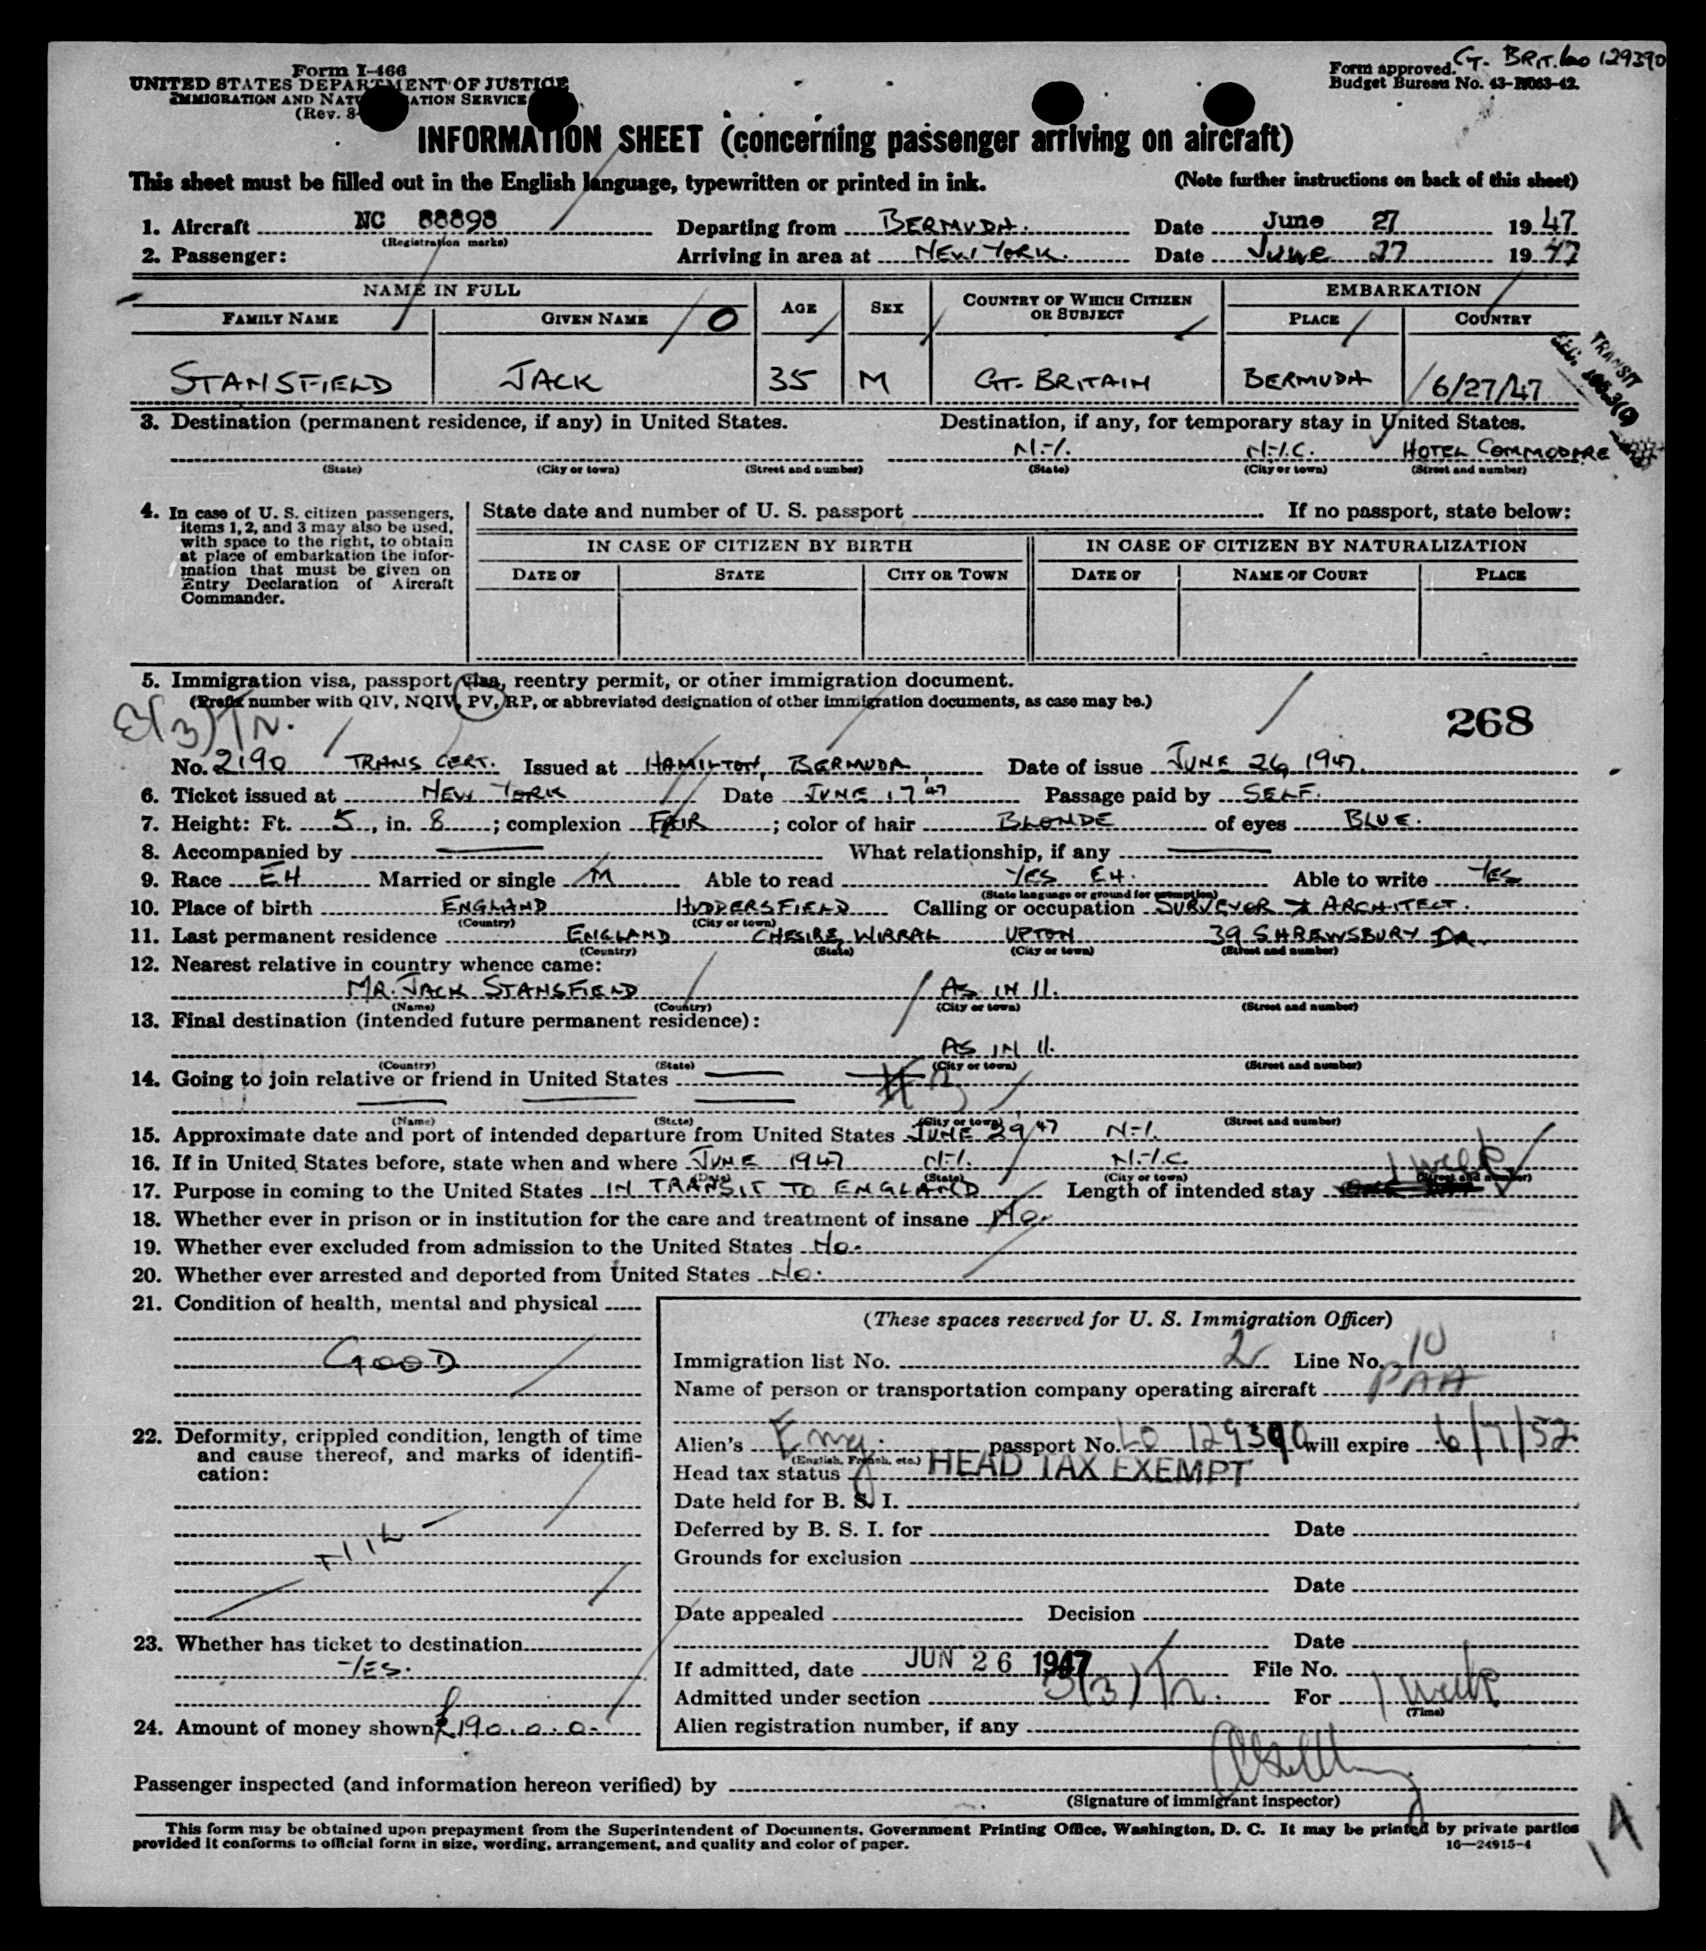 Gt. BRIT. LO 129390
Form I-466
UNITED STATES DEPARTMENT OF JUSTICE
IMMIGRATION AND NATURALIZATION SERVICE
(Rev. 8-
Form approved.
Budget Bureau No. 43-R063-42.
INFORMATION SHEET (concerning passenger arriving on aircraft)
This sheet must be filled out in the English language, typewritten or printed in ink. (Note further instructions on back of this sheet)
1. Aircraft NC 88898 Departing from BERMUDA. Date June 27 1947
(Registration marks)
2. Passenger: Arriving in area at NEW YORK. Date JUNE 27 1947
NAME IN FULL AGE SEX COUNTRY OF WHICH CITIZEN OR SUBJECT EMBARKATION
FAMILY NAME GIVEN NAME O PLACE COUNTRY
STANSFIELD JACK 35 M GT. BRITAIN BERMUDA 6/27/47
TRANSIT
3. Destination (permanent residence, if any) in United States. Destination, if any, for temporary stay in United States.
N.Y. N.Y.C. HOTEL COMMODORE
(State) (City or town) (Street and number) (State) (City or town) (Street and number)
4. In case of U. S. citizen passengers, items 1, 2, and 3 may also be used, with space to the right, to obtain at place of embarkation the information that must be given on Entry Declaration of Aircraft Commander.
State date and number of U. S. passport If no passport, state below:
IN CASE OF CITIZEN BY BIRTH IN CASE OF CITIZEN BY NATURALIZATION
DATE OF STATE CITY OR TOWN DATE OF NAME OF COURT PLACE
5. Immigration visa, passport visa, reentry permit, or other immigration document.
(Prefix number with QIV, NQIV, PV, RP, or abbreviated designation of other immigration documents, as case may be.)
3(3)Tr.
268
No. 2190 TRANS CERT. Issued at HAMILTON, BERMUDA, Date of issue JUNE 26, 1947.
6. Ticket issued at NEW YORK Date JUNE 17 47 Passage paid by SELF.
7. Height: Ft. 5, in. 8; complexion FAIR; color of hair BLONDE of eyes BLUE.
8. Accompanied by What relationship, if any
9. Race EH Married or single M Able to read YES EH. Able to write YES
(State language or ground for exemption)
10. Place of birth ENGLAND HUDDERSFIELD Calling or occupation SURVEYOR & ARCHITECT.
(Country) (City or town)
11. Last permanent residence ENGLAND CHESIRE, WIRRAL UPTON 39 SHREWSBURY DR.
(Country) (State) (City or town) (Street and number)
12. Nearest relative in country whence came:
MR. JACK STANSFIELD AS IN 11.
(Name) (Country) (City or town) (Street and number)
13. Final destination (intended future permanent residence):
AS IN 11.
(Country) (State) (City or town) (Street and number)
14. Going to join relative or friend in United States
(Name) (State) (City or town) (Street and number)
15. Approximate date and port of intended departure from United States JUNE 29, 47 N.Y.
16. If in United States before, state when and where JUNE 1947 N.Y. N.Y.C.
(Date) (State) (City or town) (Street and number)
17. Purpose in coming to the United States IN TRANSIT TO ENGLAND Length of intended stay 1 week
18. Whether ever in prison or in institution for the care and treatment of insane No.
19. Whether ever excluded from admission to the United States No.
20. Whether ever arrested and deported from United States No.
21. Condition of health, mental and physical
GOOD
22. Deformity, crippled condition, length of time and cause thereof, and marks of identification:
23. Whether has ticket to destination
YES.
24. Amount of money shown £190.0.0.
(These spaces reserved for U. S. Immigration Officer)
Immigration list No. 2 Line No. 10
Name of person or transportation company operating aircraft PAA
Alien's Eng. passport No. LO 129390 will expire 6/7/52.
(English, French, etc.)
Head tax status HEAD TAX EXEMPT
Date held for B. S. I.
Deferred by B. S. I. for Date
Grounds for exclusion
Date
Date appealed Decision
Date
If admitted, date JUN 26 1947 File No.
Admitted under section 3(3) Tr. For 1 week
(Time)
Alien registration number, if any
Passenger inspected (and information hereon verified) by
(Signature of immigrant inspector)
This form may be obtained upon prepayment from the Superintendent of Documents, Government Printing Office, Washington, D. C. It may be printed by private parties
provided it conforms to official form in size, wording, arrangement, and quality and color of paper. 16—24915-4